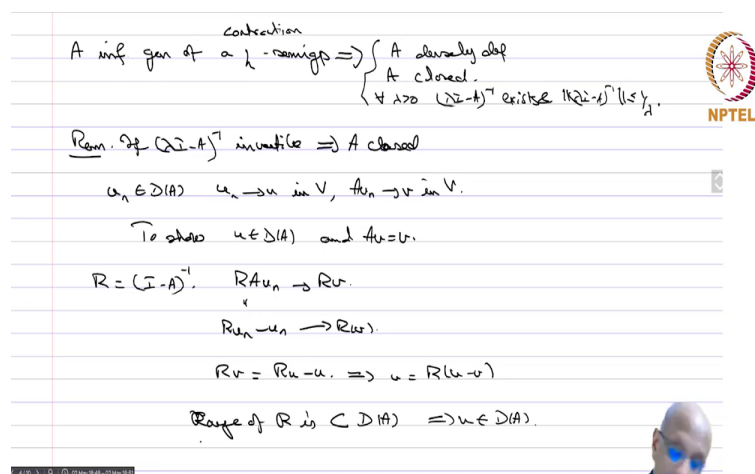 contraction
A inf gen of a C₀-semigp ⟹ { A densely def
A closed.
∀ λ>0 (λI-A)⁻¹ exists & ‖(λI-A)⁻¹‖ ≤ 1/λ.
NPTEL
Rem. If (λI-A)⁻¹ invertible ⟹ A closed
uₙ ∈ D(A) uₙ → u in V, Auₙ → v in V.
To show u ∈ D(A) and Au = v.
R = (I-A)⁻¹. RAuₙ → Rv.
Ruₙ - uₙ → R(v)
Rv = Ru - u. ⟹ u = R(u-v)
Range of R is ⊂ D(A) ⟹ u ∈ D(A).